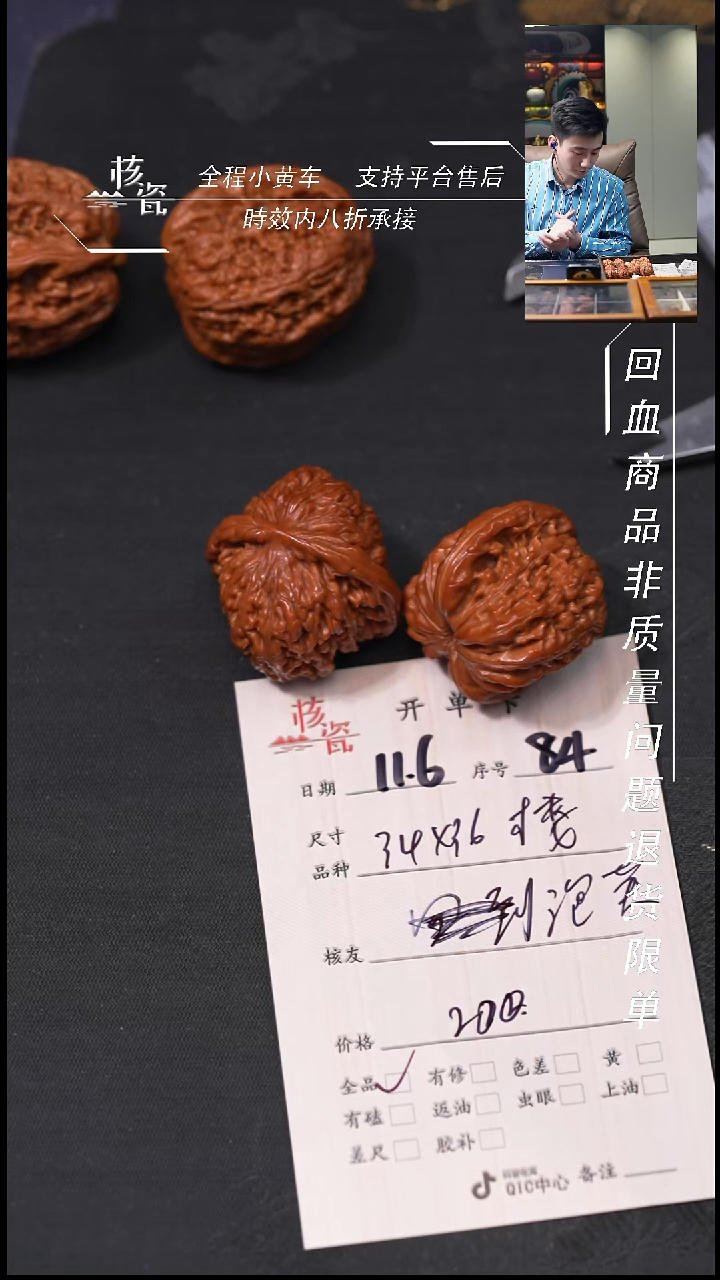 核瓷
全程小黄车 支持平台售后
時效内八折承接
回血商品非质量问题退货限单
核瓷
开单卡
日期 11.6 序号 84
尺寸
品种 34X36
核友 到
价格 200.
全品 有修 色差 黄
有磕 返油 虫眼 上油
差尺 胶补
QIC中心 备注